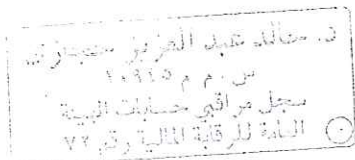 ن. خالد عبد العزيز حجازي
س . م . م ١٠٩٤٥
سجل مراقبي حسابات الهيئة
العامة للرقابة المالية رقم ٧٢